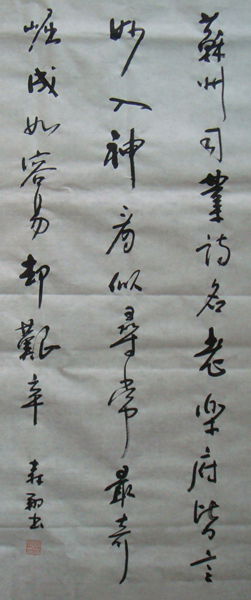 蘇州司業詩名老樂府皆言
妙入神看似尋常最奇
崛成如容易却艱辛
书